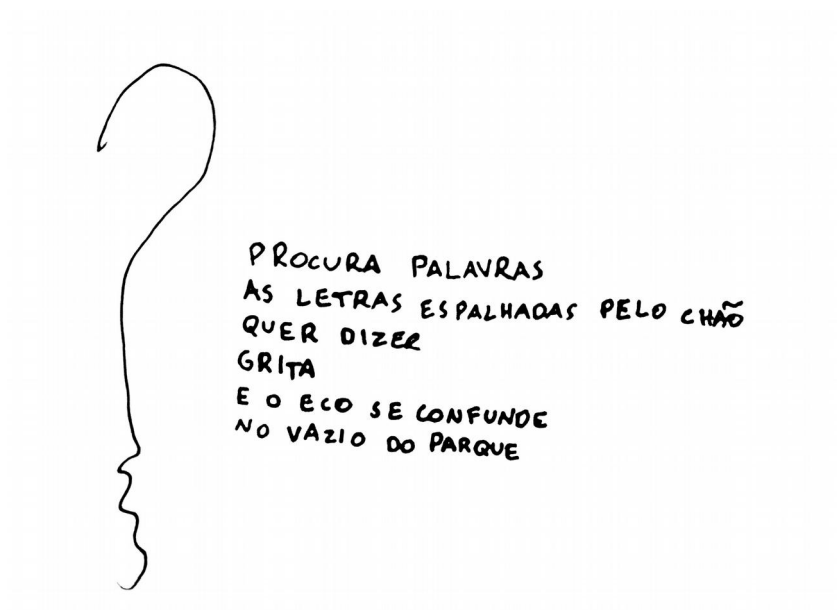 PROCURA PALAVRAS
AS LETRAS ESPALHADAS PELO CHÃO
QUER DIZER
GRITA
E O ECO SE CONFUNDE
NO VAZIO DO PARQUE